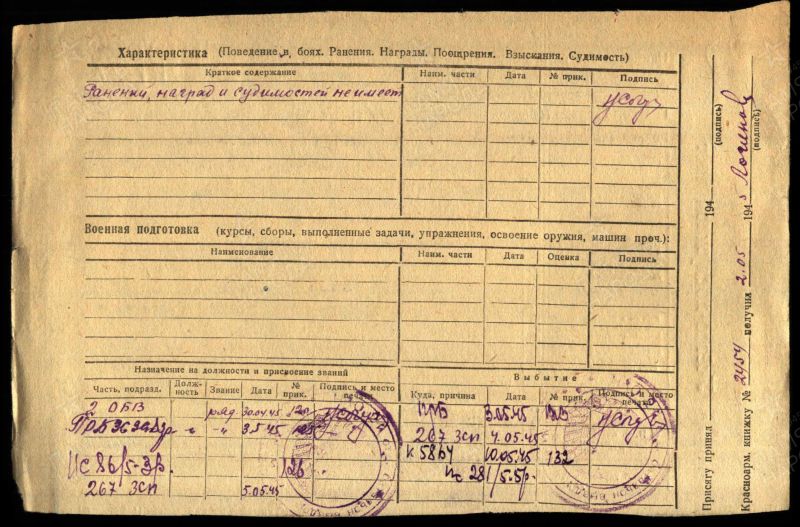 Характеристика (Поведение в боях. Ранения. Награды. Поощрения. Взыскания. Судимость)
Краткое содержание Наим. части Дата № прик. Подпись
Ранений, наград и судимостей не имеет
Военная подготовка (курсы, сборы, выполненные задачи, упражнения, освоение оружия, машин проч.):
Наименование Наим. части Дата Оценка Подпись
Назначение на должности и присвоение званий
Часть, подразд. Долж- ность Звание Дата № прик. Подпись и место печати
2 ОБВ ряд 30.04.45
" 3.5.45
126
267 зсп 5.05.45
Выбытие
Куда, причина Дата № прик. Подпись и место печати
3.05.45
267 зсп 4.05.45
к 5864 10.05.45 132
Присягу принял 194 (подпись)
Красноарм. книжку № 2454 получил 2.05 1945 Логинов (подпись)